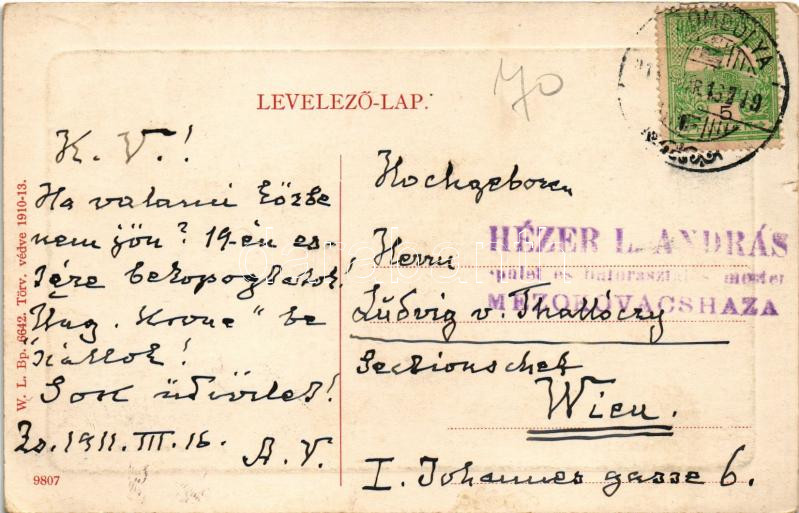 ZSOMBOLYA
70
LEVELEZŐ-LAP.
K. V.!
Ha valami közbe
nem jön? 19-én es
tére bekopogtatok,
Ung. Krone" be
szállok!
Sok üdvözlet!
Zs. 1911. III. 16.
A. V.
Hochgeboren
Herrn
Ludvig v. Thallóczy
Sectionschef
Wien.
I. Johannes gasse 6.
HÉZER L. ANDRÁS
épület és bútorasztalos mester
MEZŐKOVÁCSHÁZA
W. L. Bp. 6642. Törv. védve 1910-13.
9807
5